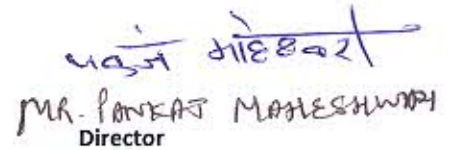 पंकज माहेश्वरी
MR. PANKAJ MAHESHWARI
Director